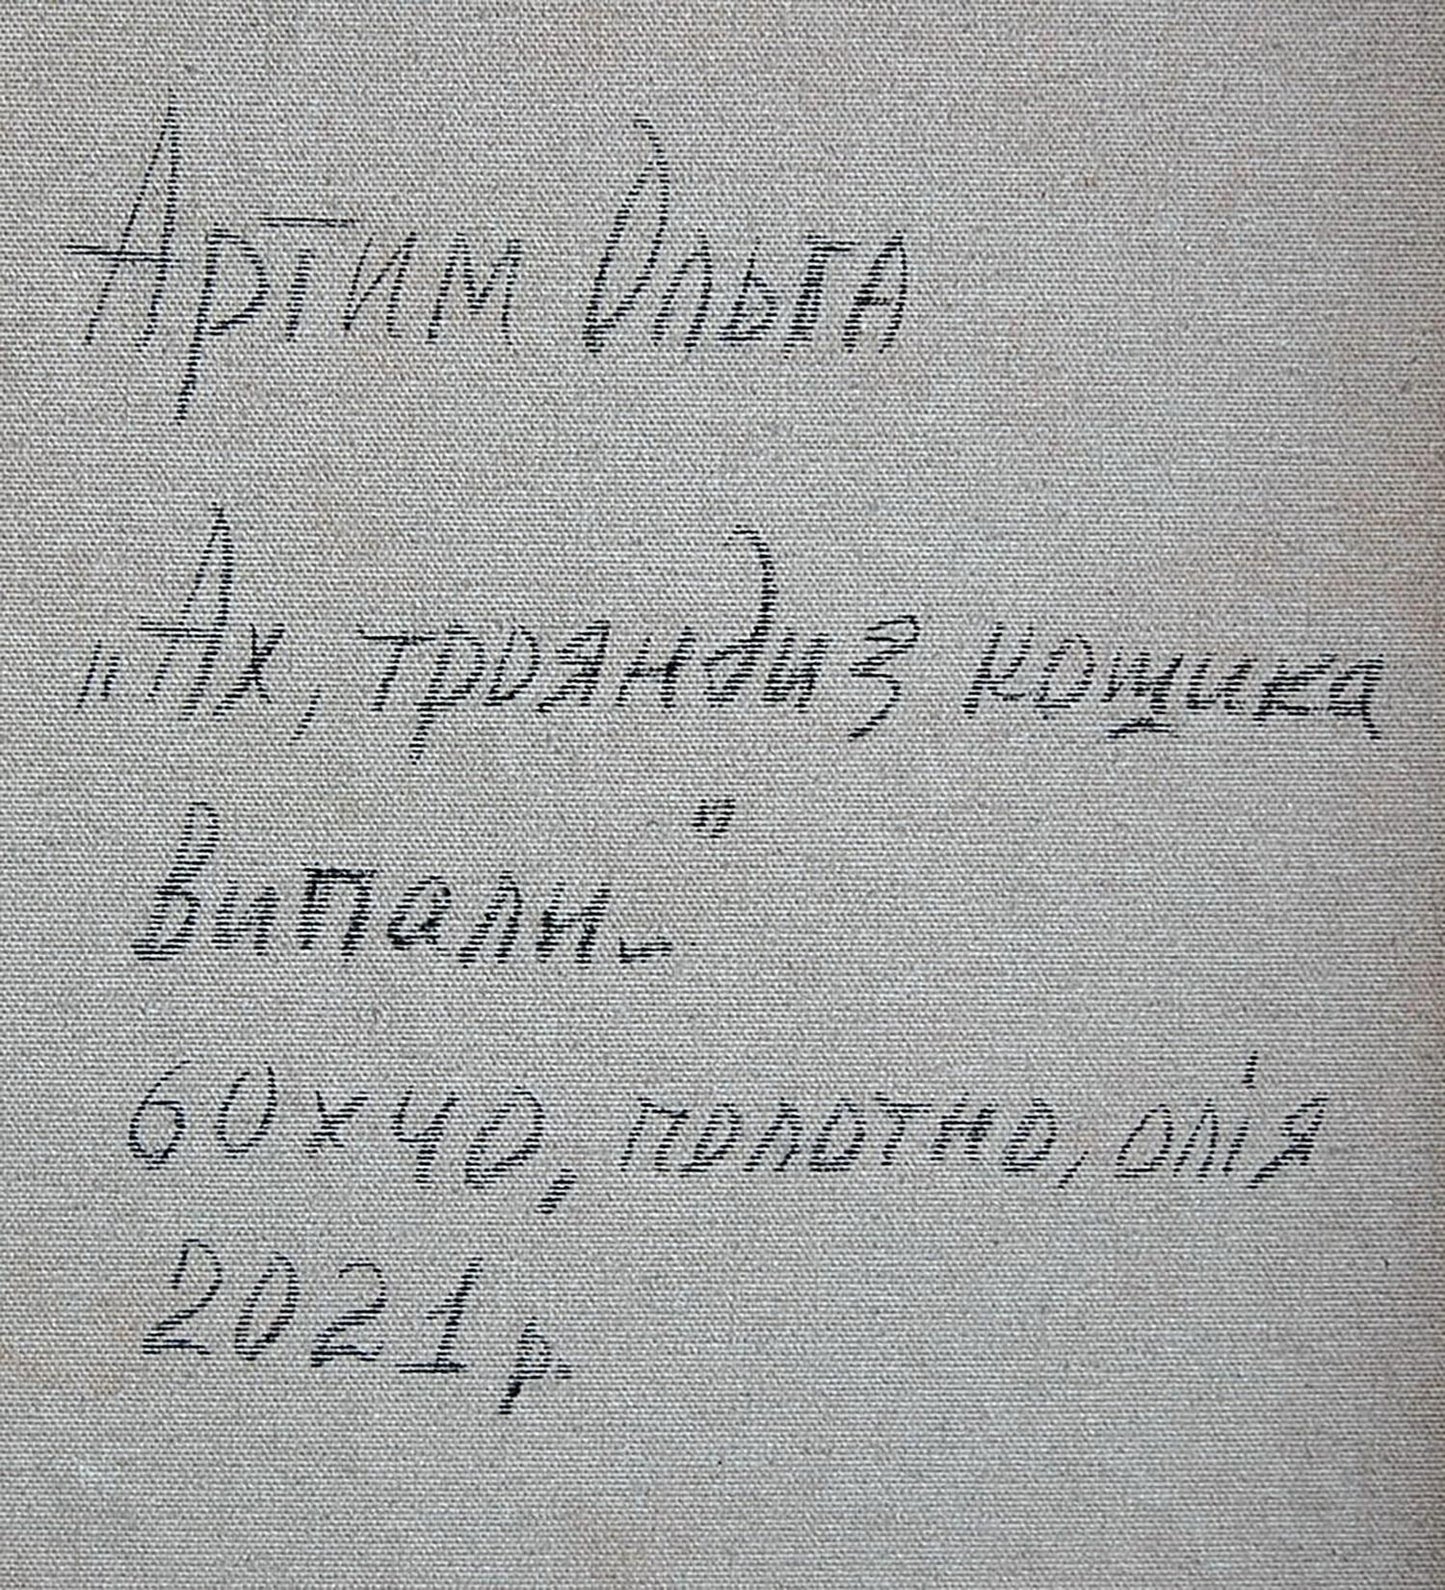 Артим Ольга
„Ах, троянди з кошика
випали..."
60х40, полотно, олія
2021 р.